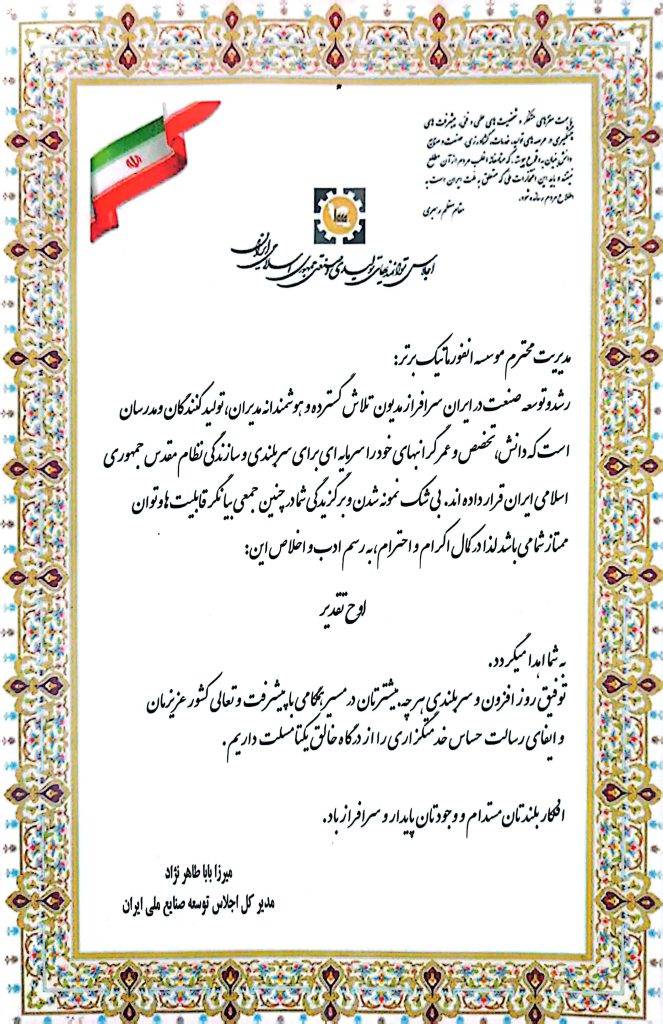 باید مغزهای متفکر و شخصیت های علمی و فنی، پیشرفت های
چشمگیری در عرصه های تولید، خدمات، کشاورزی، صنعت و منابع
دانش بنیان به وقوع که متاسفانه اغلب مردم از آن مطلع
نیستند و باید این افتخارات ملی که متعلق به ملت ایران است به
اطلاع مردم رسانده شود.
مقام معظم رهبری
اجلاس توانمندیهای تولیدی و صنعتی جمهوری اسلامی ایران
مدیریت محترم موسسه انفورماتیک برتر:
رشد و توسعه صنعت در ایران سرافراز مدیون تلاش گسترده و هوشمندانه مدیران، تولید کنندگان و مدرسان
است که دانش، تخصص و عمر گرانبهای خود را سرمایه ای برای سربلندی و سازندگی نظام مقدس جمهوری
اسلامی ایران قرار داده اند. بی شک نمونه شدن و برگزیدگی شما در چنین جمعی بیانگر قابلیت ها و توان
ممتاز شما می باشد لذا در کمال اکرام و احترام، به رسم ادب و اخلاص این:
لوح تقدیر
به شما اهدا میگردد.
توفیق روز افزون و سربلندی هر چه بیشترتان در مسیر همگامی با پیشرفت و تعالی کشور عزیزمان
و ایفای رسالت حساس خدمتگزاری را از درگاه خالق یکتا مسئلت داریم.
افکار بلندتان مستدام و وجودتان پایدار و سرافراز باد.
میرزا بابا طاهر نژاد
مدیر کل اجلاس توسعه صنایع ملی ایران